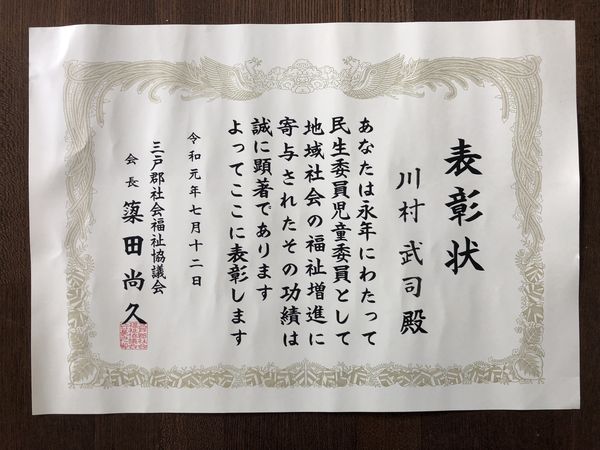 表彰状
川村武司殿
あなたは永年にわたって
民生委員児童委員として
地域社会の福祉増進に
寄与されたその功績は
誠に顕著であります
よってここに表彰します
令和元年七月十二日
三戸郡社会福祉協議会
会長 簗田尚久